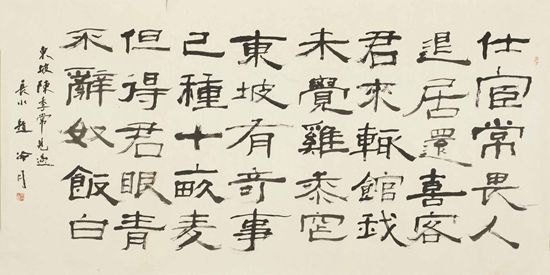 仕宦常畏人
退居還喜客
君來輒館我
未覺雞黍窄
東坡有奇事
已種十畝麦
但得君眼青
不辭奴飯白
東坡陳季常見過
長水趙冷月